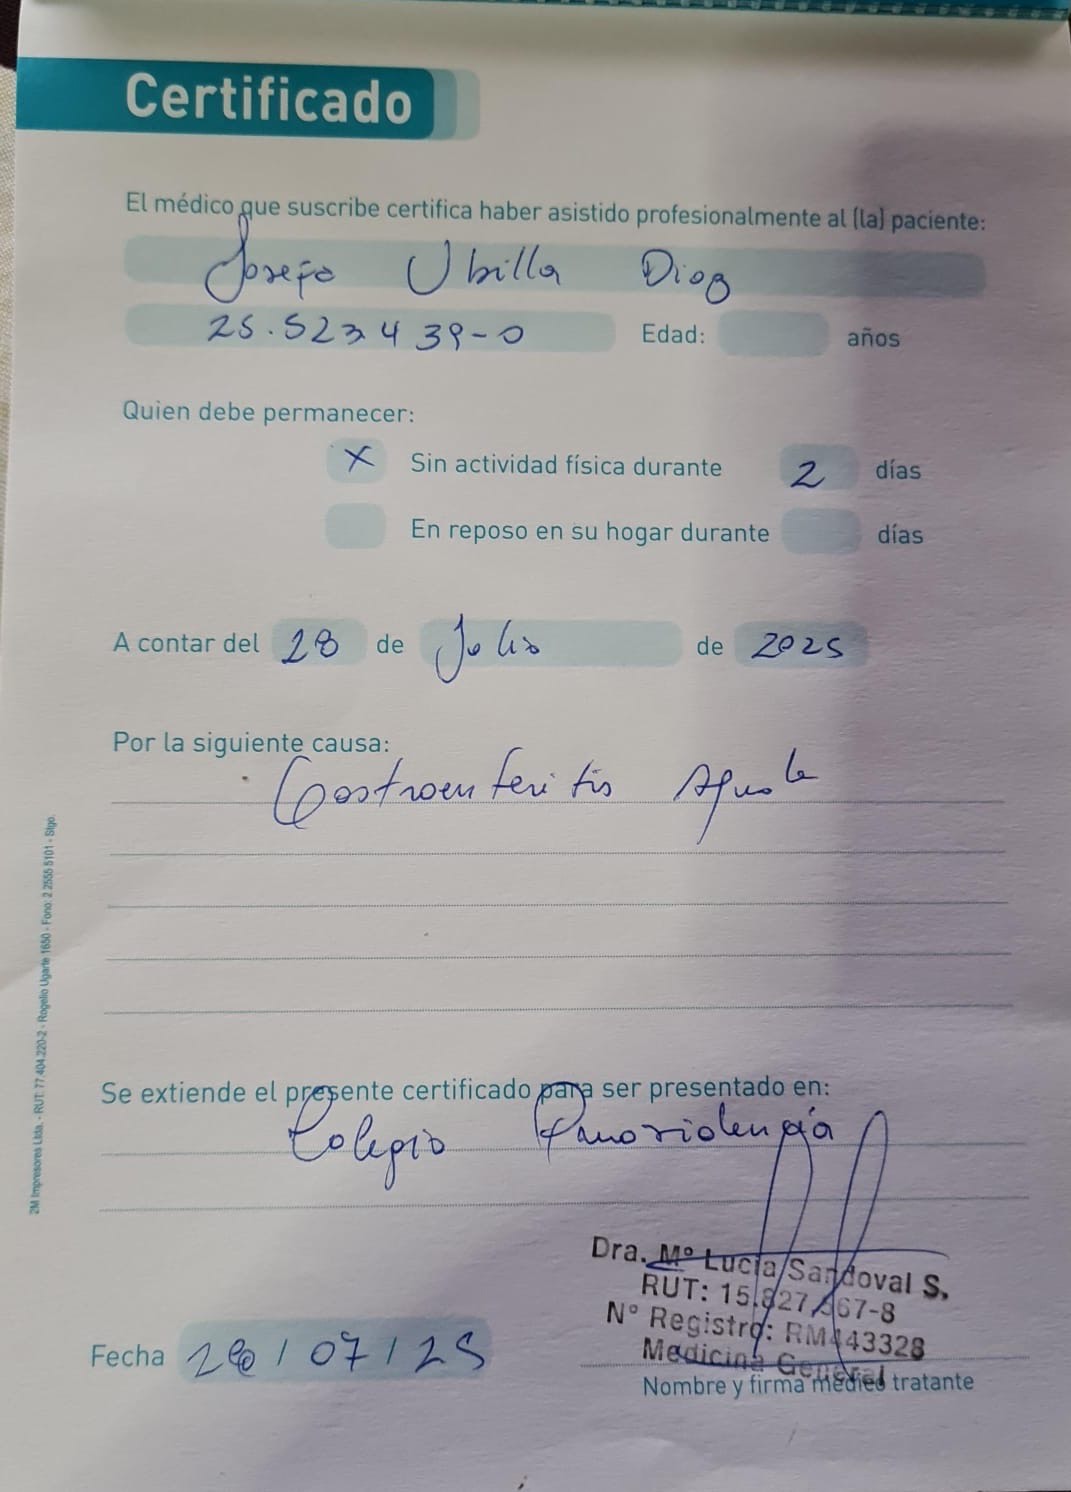 Certificado
El médico que suscribe certifica haber asistido profesionalmente al (la) paciente:
Josefa Ubilla Diaz
25.523439-0 Edad: años
Quien debe permanecer:
X Sin actividad física durante 2 días
En reposo en su hogar durante días
A contar del 28 de Julio de 2025
Por la siguiente causa:
Gastroenteritis Aguda
Se extiende el presente certificado para ser presentado en:
Colegio
Dra. Mº Lucía Sandoval S.
RUT: 15.827. 67-8
N° Registro: RM443328
Medicina General
Fecha 28/07/25
Nombre y firma médico tratante
2M Impresores Ltda. - RUT: 77.404.220-2 - Rogelio Ugarte 1650 - Fono: 2 2555 5101 - Stgo.